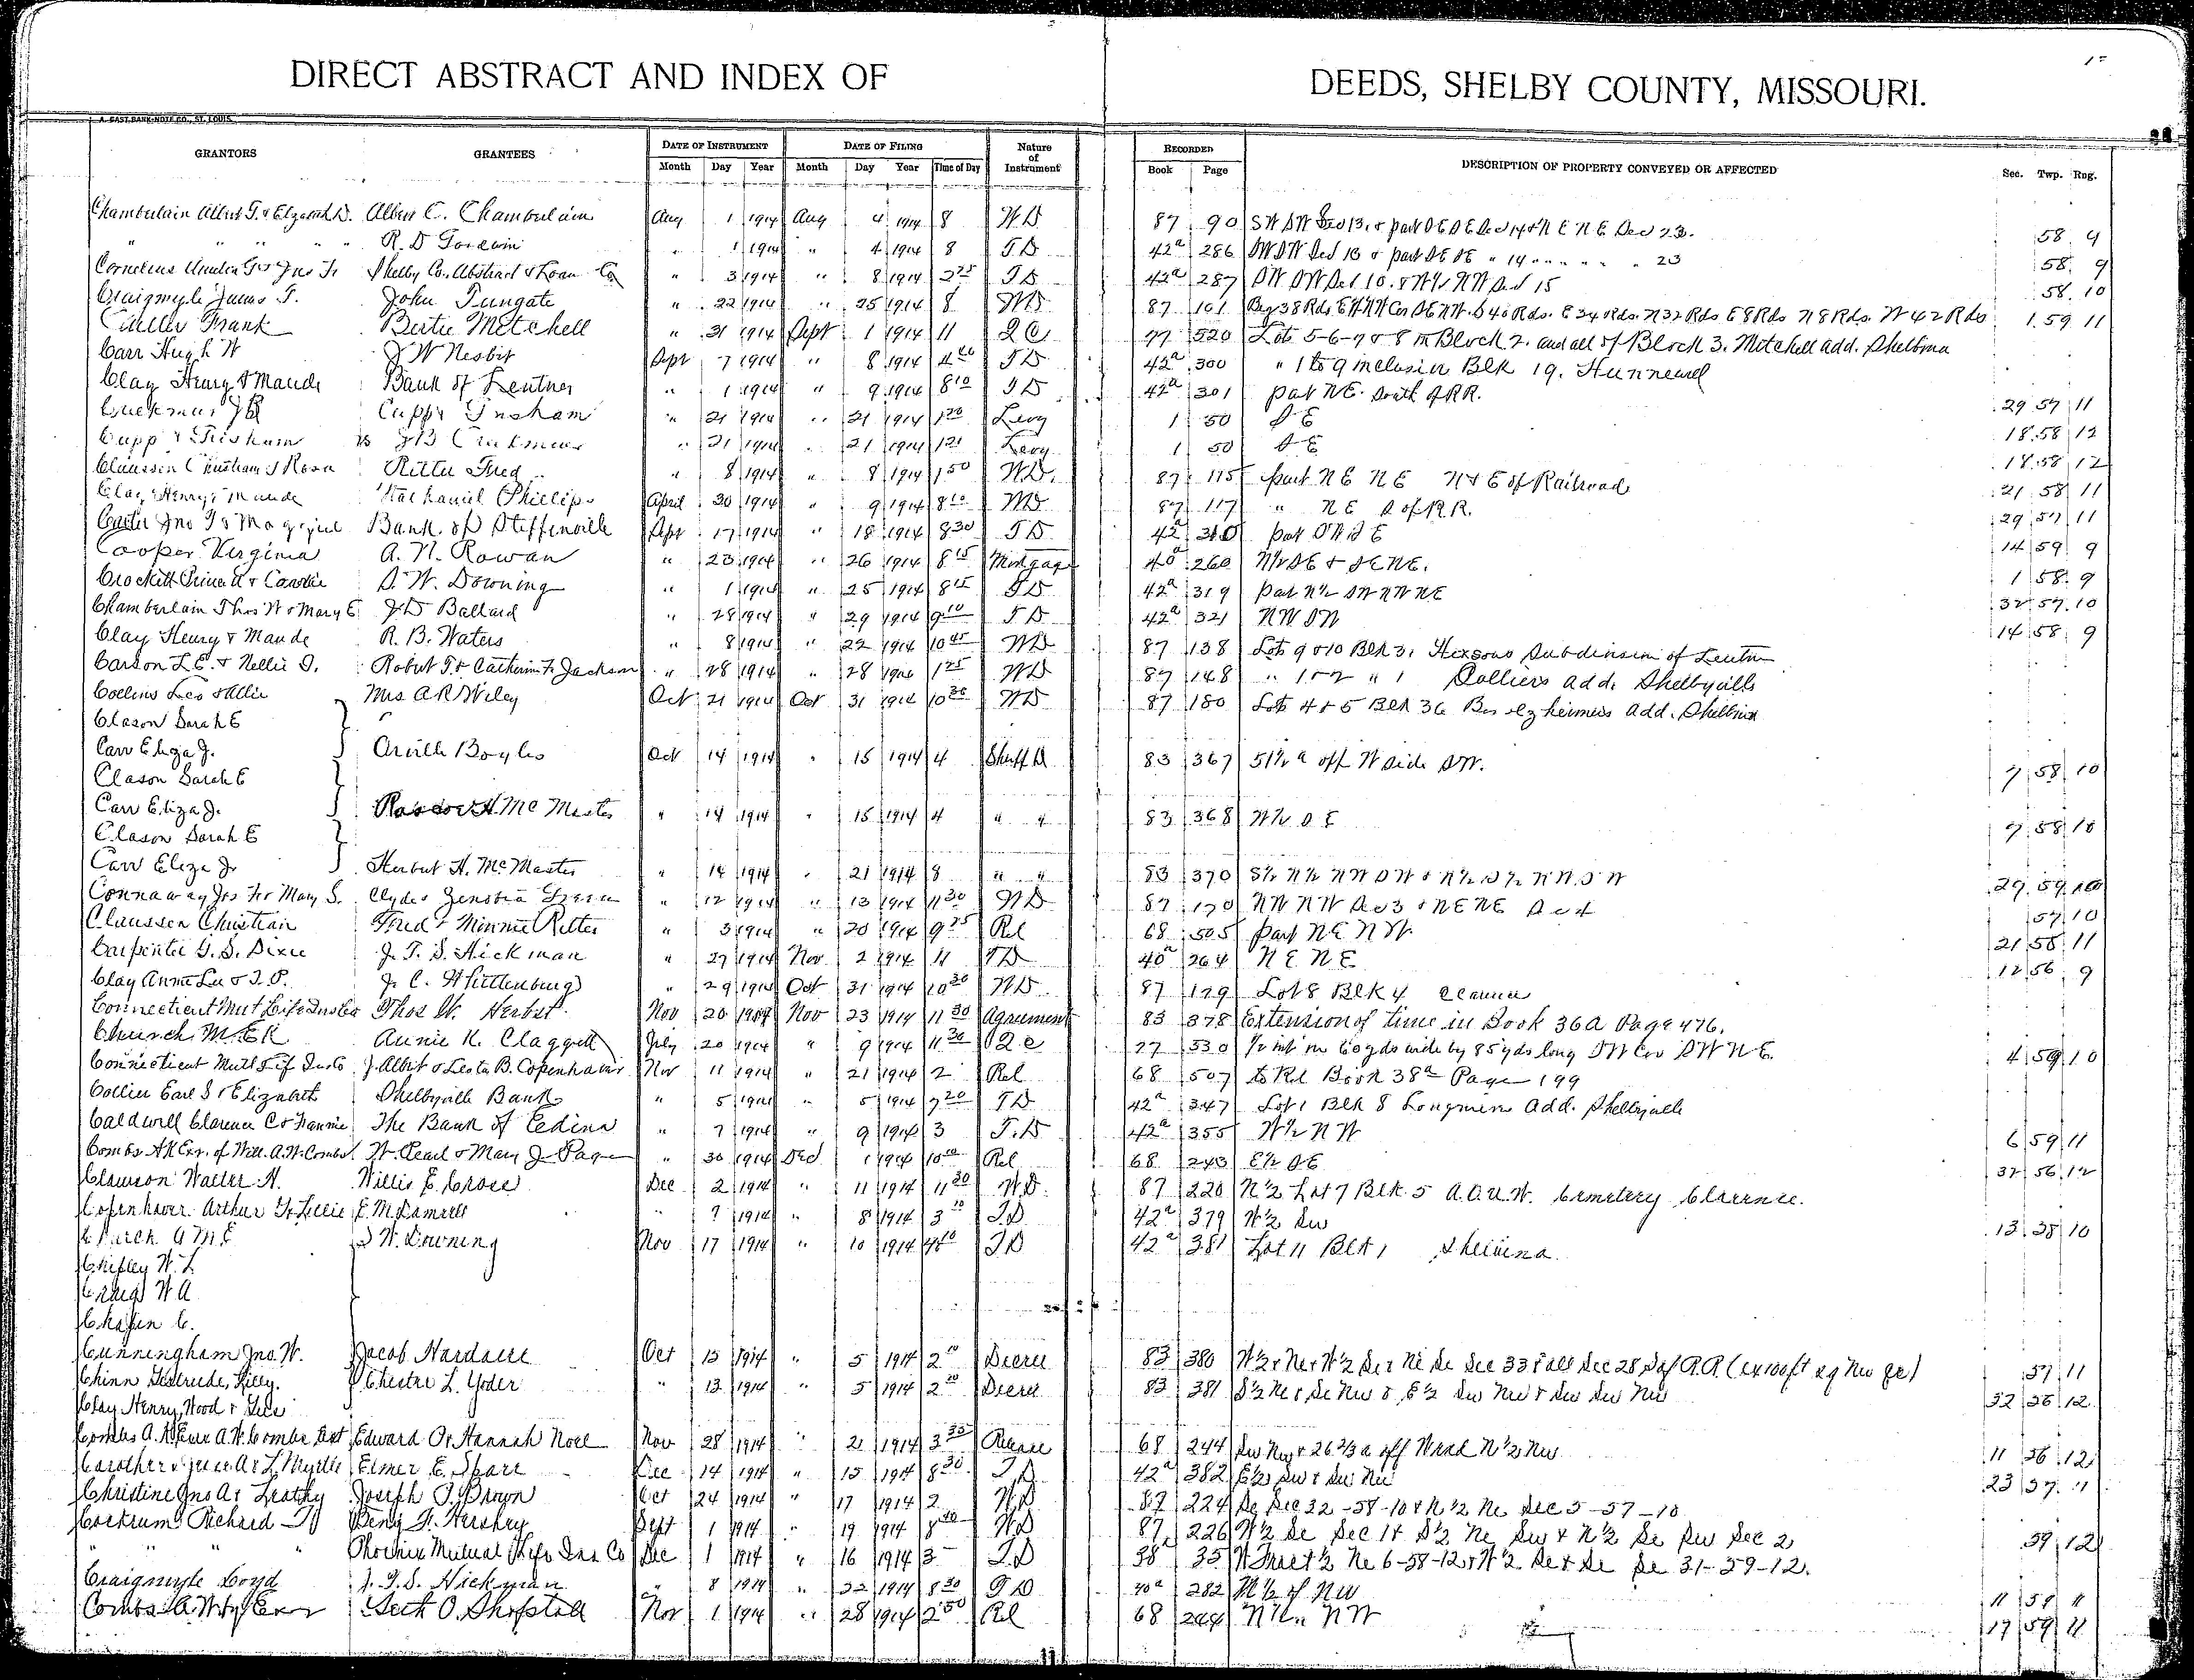 DIRECT ABSTRACT AND INDEX OF DEEDS, SHELBY COUNTY, MISSOURI.
A. GAST BANK NOTE CO., ST. LOUIS.
GRANTORS GRANTEES DATE OF INSTRUMENT DATE OF FILING Nature of Instrument RECORDED DESCRIPTION OF PROPERTY CONVEYED OR AFFECTED Sec. Twp. Rng.
Month Day Year Month Day Year Time of Day Book Page
Chamberlain Albert T. & Elizabeth D. Albert C. Chamberlain Aug 1 1914 Aug 4 1914 8 WD 87 90 SW SW Sec 13, & part SE SE Sec 14 & N E N E Sec 23. 58 9
" " " " R. D Goodwin " 1 1914 " 4 1914 8 TD 42a 286 SW SW Sec 13 & part SE SE " 14 " " " " " 23 58 9
Cornelius Jno Shelby Co. Abstract & Loan Co " 3 1914 " 8 1914 2 25 TD 42a 287 SW SW Sec 10. & N½ NW Sec 15 58 10
Craigmyle James T. John Tungate " 22 1914 " 25 1914 8 WD 87 101 Beg 38 Rds E of NW Cor SE NW. S 40 Rds. E 34 Rds. N 32 Rds E 8 Rds N 8 Rds. W 42 Rds 1 59 11
Frank Bertie Mitchell " 31 1914 Sept 1 1914 11 QC 77 520 Lots 5-6-7 & 8 in Block 2. and all of Block 3. Mitchell add. Shelbina
Carr Hugh W J W Nesbit Sept 7 1914 " 8 1914 4 TD 42a 300 " 1 to 9 inclusive Blk 19. Hunnewell
Clay Henry & Maude Bank of Lentner " 1 1914 " 9 1914 8 10 TD 42a 301 part NE. South of RR. 29 57 11
Cupp & " 21 1914 " 21 1914 1 20 Levy 1 50 S E 18 58 12
Cupp & vs J B " 21 1914 " 21 1914 1 21 Levy 1 50 S E 18 58 12
Claussen Christian & Rosa Ritter Fred " 8 1914 " 8 1914 1 50 WD. 87 115 part N E N E N & E of Railroad 21 58 11
Clay Henry & Maude Nathaniel Phillips April 30 1914 " 9 1914 8 10 WD 87 117 " N E S of R.R. 29 57 11
Carter Jno T & Bank of Steffenville Sept 17 1914 " 18 1914 8 30 TD 42a 310 part SW S E 14 59 9
Cooper Virginia A. N. Rowan " 23 1914 " 26 1914 8 15 Mortgage 40a 260 N½ SE & SE NE. 1 58 9
Crockett Prince A & Carolie S. W. Downing " 1 1914 " 25 1914 8 15 TD 42a 319 part N½ SW NW NE 32 57 10
Chamberlain Thos W & Mary E J D Ballard " 28 1914 " 29 1914 9 10 TD 42a 321 NW SW 14 58 9
Clay Henry & Maude R. B. Waters " 8 1914 " 22 1914 10 45 WD 87 138 Lots 9 & 10 Blk 3, Hixsons Subdivision of Lentner
Carson L. E. & Nellie D. Robert T. & Catherine F. Jackson " 28 1914 " 28 1914 1 25 WD 87 148 " 1 & 2 " 1 Colliers add. Shelbyville
Collins Leo & Allie Mrs A R Wiley Oct 21 1914 Oct 31 1914 10 30 WD 87 180 Lots 4 & 5 Blk 36 add. Shelbina
Clason Sarah E
Carr Eliza J. Orville Boyles Oct 14 1914 " 15 1914 4 Sheriff D 83 367 51½ a off W side SW. 7 58 10
Clason Sarah E
Carr Eliza J. Roscoe H. McMaster " 14 1914 " 15 1914 4 " " 83 368 W½ S E 7 58 10
Clason Sarah E
Carr Eliza J Herbert H. McMaster " 14 1914 " 21 1914 8 " " 83 370 S½ N½ NW SW & N½ S½ NW SW 29 59 10
Connaway Jos F & Mary S. Clyde & Zenobia Green " 12 1914 " 13 1914 11 30 WD 87 170 NW NW Sec 3 & NE NE Sec 4 57 10
Claussen Christian Fred & Minnie Ritter " 3 1914 " 20 1914 9 25 Rel 68 505 part NE NW. 21 58 11
Carpenter G. S. Dixie J. T. S. Hickman " 27 1914 Nov 2 1914 11 TD 40a 264 N E N E 12 56 9
Clay Annie Lu & T. P. J. C. Whittenburg " 29 1914 Oct 31 1914 10 30 WD 87 179 Lot 8 Blk 4 Clarence
Connecticut Mut Life Ins Co Thos W. Herbst Nov 20 1914 Nov 23 1914 11 30 Agreement 83 378 Extension of time in Book 36a Page 476.
Church M. E. Annie K. Claggett July 20 1914 " 9 1914 11 30 Q C 77 530 ½ int in 60 yds wide by 85 yds long SW Cor SW N E. 4 59 10
Connecticut Mutl Life Ins Co J. Albert & Lesta B. Copenhaver Nov 11 1914 " 21 1914 2 Rel 68 507 to Rel Book 38a Page 199
Collier Earl S & Elizabeth Shelbyville Bank " 5 1914 " 5 1914 7 20 TD 42a 347 Lot 1 Blk 8 Longmires Add. Shelbyville
Caldwell Clarence C & Fannie The Bank of Edina " 7 1914 " 9 1914 3 T. D 42a 355 W½ NW 6 59 11
Combs A K Exr. of Will. A. W. Combs W. Pearl & Mary J. Page " 30 1914 Dec 1 1914 10 Rel 68 243 E½ SE 32 56 12
Clawson Walter H. Willis E. Cross Dec 2 1914 " 11 1914 11 30 W.D. 87 220 N½ Lot 7 Blk. 5 A. O. U. W. Cemetery Clarence.
Copenhaver Arthur G. & Lillie E. M. Damrell " 7 1914 " 8 1914 3 10 T.D 42a 379 W½ Sw 13 58 10
Church A M E S W. Downing Nov 17 1914 " 10 1914 4 10 TD 42a 381 Lot 11 Blk 1 Shelbina
Chipley W. L
Craig W A
Chapin C.
Cunningham Jno. W. Jacob Oct 13 1914 " 5 1914 2 Decree 83 380 57 11
Chinn Gertrude, Lilly. Chester L. Yoder " 13 1914 " 5 1914 2 20 Decree 83 381 S½ Ne & Se Nw & E½ Sw Nw & Sw Sw Nw 32 56 12
Clay Henry, Wood &
Combs A. K. Exr A. W. Combs Est Edward O & Hannah Noel Nov 28 1914 " 21 1914 3 35 Release 68 244 Sw Nw & 26 2/3 a off W end N½ Nw 11 56 12
Elmer E. Sparr Dec 14 1914 " 15 1914 8 30 T.D 42a 382 E½ Sw & Sw Nw 23 57 11
Christine Jno A & Joseph T. Brown Oct 24 1914 " 17 1914 2 WD 87 224 Se Sec 32-58-10 & N½ Ne Sec 5-57-10
Cockrum Richard Benj F. Hershey Sept 1 1914 " 19 1914 8 40 WD 87 226 W½ Se Sec 1 & S½ Ne Sw & N½ Se Sw Sec 2 59 12
" " " Phoenix Mutual Life Ins Co Dec 1 1914 " 16 1914 3 T.D 38a 35 W Fract ½ Ne 6-58-12 & W½ Se & Se Se 31-59-12.
Craigmyle Loyd J. T. S. Hickman " 8 1914 " 22 1914 8 30 TD 40a 282 N½ of NW 11 58 11
Combs A. W. by Exr Seth O. Shofstall Nov 1 1914 " 28 1914 2 50 Rel 68 244 N½ NW 17 59 11